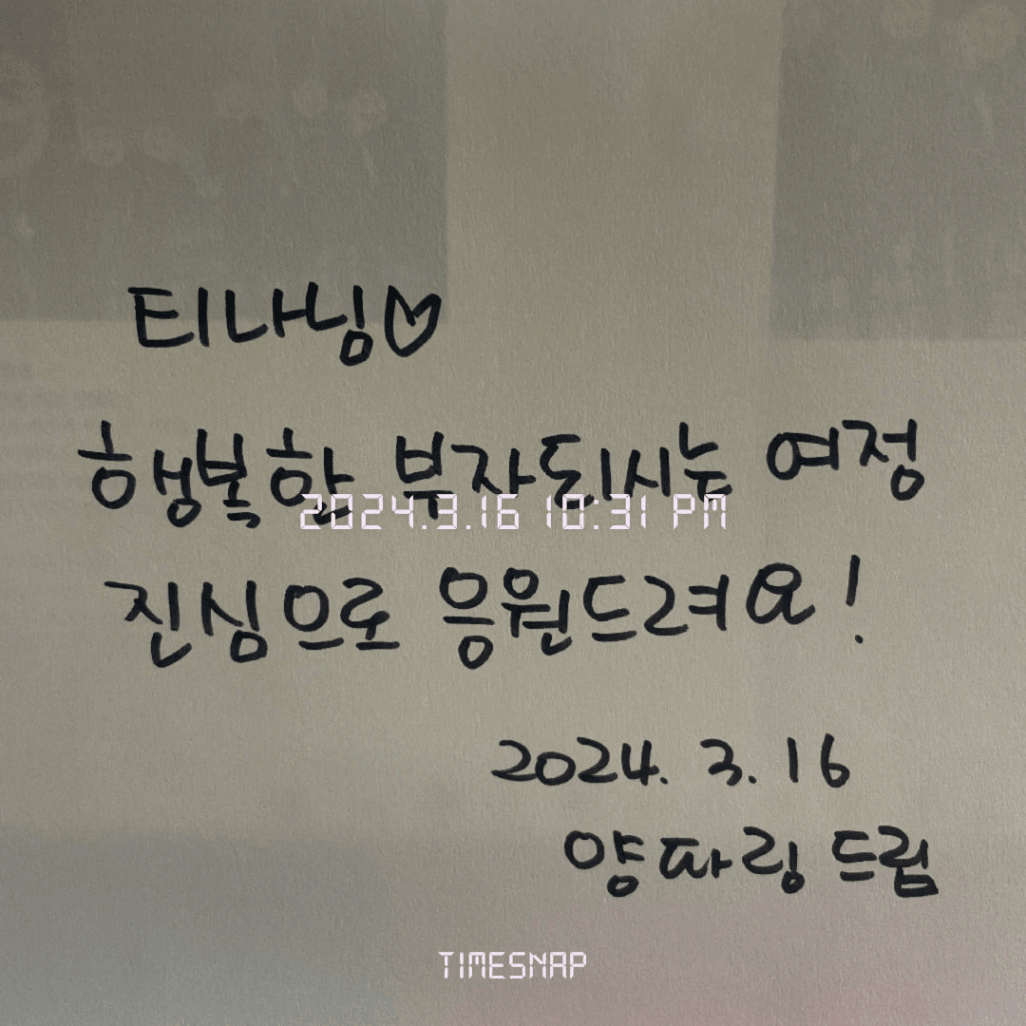 티나님♡
행복한 부자되시는 여정
2024.3.16 10:31 PM
진심으로 응원드려요!
2024. 3. 16
양파링 드림
TIMESNAP